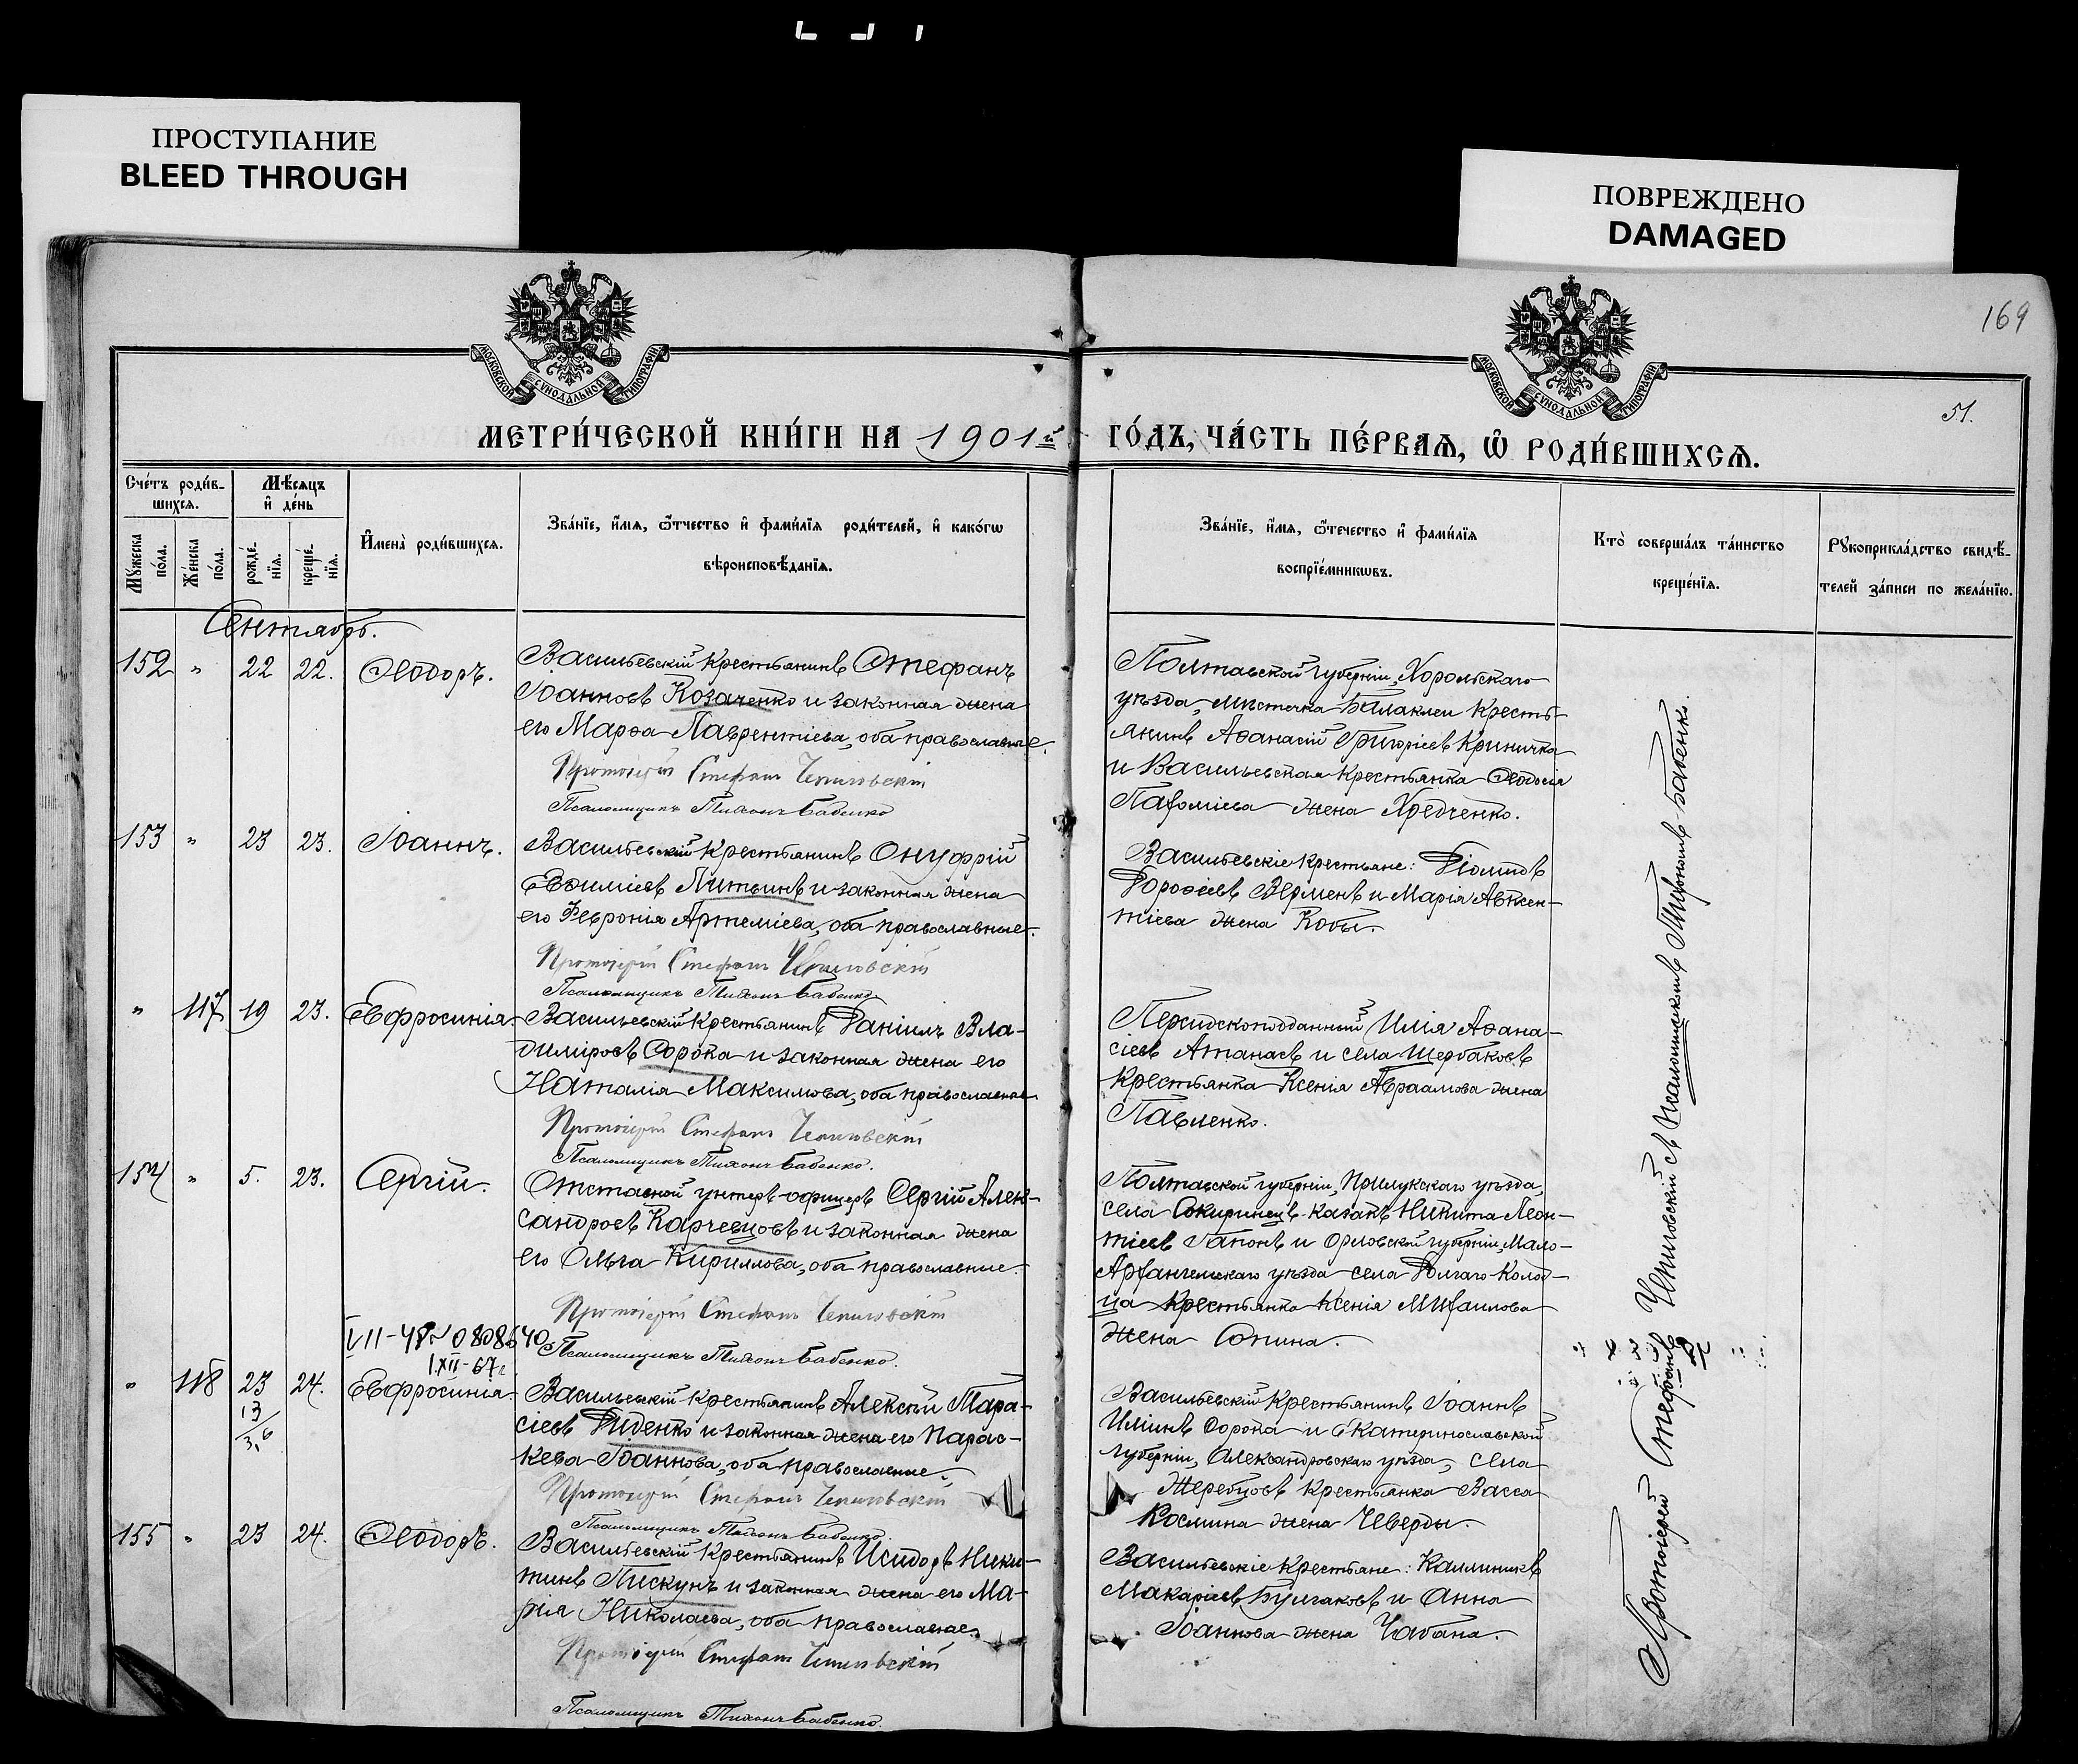 ПРОСТУПАНИЕ
BLEED THROUGH
ПОВРЕЖДЕНО
DAMAGED
169
МОСКОВСКОЙ СѴНОДАЛЬНОЙ ТИПОГРАФІИ
МОСКОВСКОЙ СѴНОДАЛЬНОЙ ТИПОГРАФІИ
51.
МЕТРИ́ЧЕСКОЙ КНИ́ГИ НА 1901й ГО́ДЪ, ЧА́СТЬ ПЕ́РВАѦ, Ѡ҆ РОДИ́ВШИХСѦ.
Сче́тъ роди́в-
шихсѧ.
Мѣ́сѧцъ
и҆ де́нь
Мꙋ́жеска
по́ла.
Же́нска
по́ла.
рожде́-
нїѧ.
креще́-
нїѧ.
И҆мена̀ роди́вшихсѧ.
Зва́нїе, и҆́мѧ, ѿтчество и҆ фами́лїѧ роди́телей, и҆ како́гѡ
вѣроисповѣ́данїѧ.
Зва́нїе, и҆́мѧ, ѿте́чество и҆ фами́лїѧ
воспрїе́мникѡвъ.
Кто̀ соверша́лъ та́инство
креще́нїѧ.
Рꙋкоприкла́дство свидѣ́-
телей за́писи по жела́нїю.
Сентябрь.
152 " 22 22. Ѳеодоръ.
Васильевскій крестьянинъ Стефанъ
Іоанновъ Козаченко и законная жена
его Марѳа Лаврентіева, оба православные.
Протоіерей Стефанъ Черниговскій
Псаломщикъ Тихонъ Бабенко
Полтавской губерніи, Хорольскаго
уѣзда, мѣстечка Балаклеи кресть-
янинъ Аѳанасій Григоріевъ Криничка
и Васильевская крестьянка Ѳеодосія
Пахоміева жена Хредченко.
153 " 23 23. Іоаннъ.
Васильевскій крестьянинъ Онуфрій
Евѳиміевъ Литвинъ и законная жена
его Февронія Артеміева, оба православные.
Протоіерей Стефанъ Черниговскій
Псаломщикъ Тихонъ Бабенко
Васильевскіе крестьяне: Діомидъ
Дороѳеевъ Верменъ и Марія Авксен-
тіева жена Кобы.
" 117 19 23. Евфросинія.
Васильевскій крестьянинъ Даніилъ Вла-
диміровъ Сорока и законная жена его
Наталія Максимова, оба православные
Протоіерей Стефанъ Черниговскій
Псаломщикъ Тихонъ Бабенко.
Персидскоподданный Илія Аѳана-
сіевъ Атанаевъ и села Щербаковъ
крестьянка Ксенія Авраамова жена
Павленко.
154 " 5. 23. Сергій.
Отставной унтеръ-офицеръ Сергій Алек-
сандровъ Карчевцовъ и законная жена
его Ольга Кириллова, оба православные.
Протоіерей Стефанъ Черниговскій
Псаломщикъ Тихонъ Бабенко.
Полтавской губерніи, Прилукскаго уѣзда,
села Сокиринецъ казакъ Никита Леон-
тіевъ Гапонъ и Орловской губерніи, Мало-
Архангельскаго уѣзда села Долгаго Колод-
ца крестьянка Ксенія Михаилова
жена Сопина.
" 118 23 24. Евфросинія.
13
3,6
Васильевскій крестьянинъ Алексѣй Тара-
сіевъ Диденко и законная жена его Парас-
кева Іоаннова, оба православные.
Протоіерей Стефанъ Черниговскій
Псаломщикъ Тихонъ Бабенко.
Васильевскій крестьянинъ Іоаннъ
Иліинъ Сорока и Екатеринославской
губерніи, Александровскаго уѣзда, села
Жеребцовъ крестьянка Васса
Космина жена Чеверды.
155 " 23 24. Ѳеодоръ.
Васильевскій крестьянинъ Исидоръ Ники-
тинъ Пискунъ и законная жена его Ма-
рія Николаева, оба православные.
Протоіерей Стефанъ Черниговскій
Псаломщикъ Тихонъ Бабенко.
Васильевскіе крестьяне: Каллиникъ
Макаріевъ Булгаковъ и Анна
Іоаннова жена Чабана.
Протоіерей Стефанъ Черниговскій съ псаломщикомъ Тихономъ Бабенко.